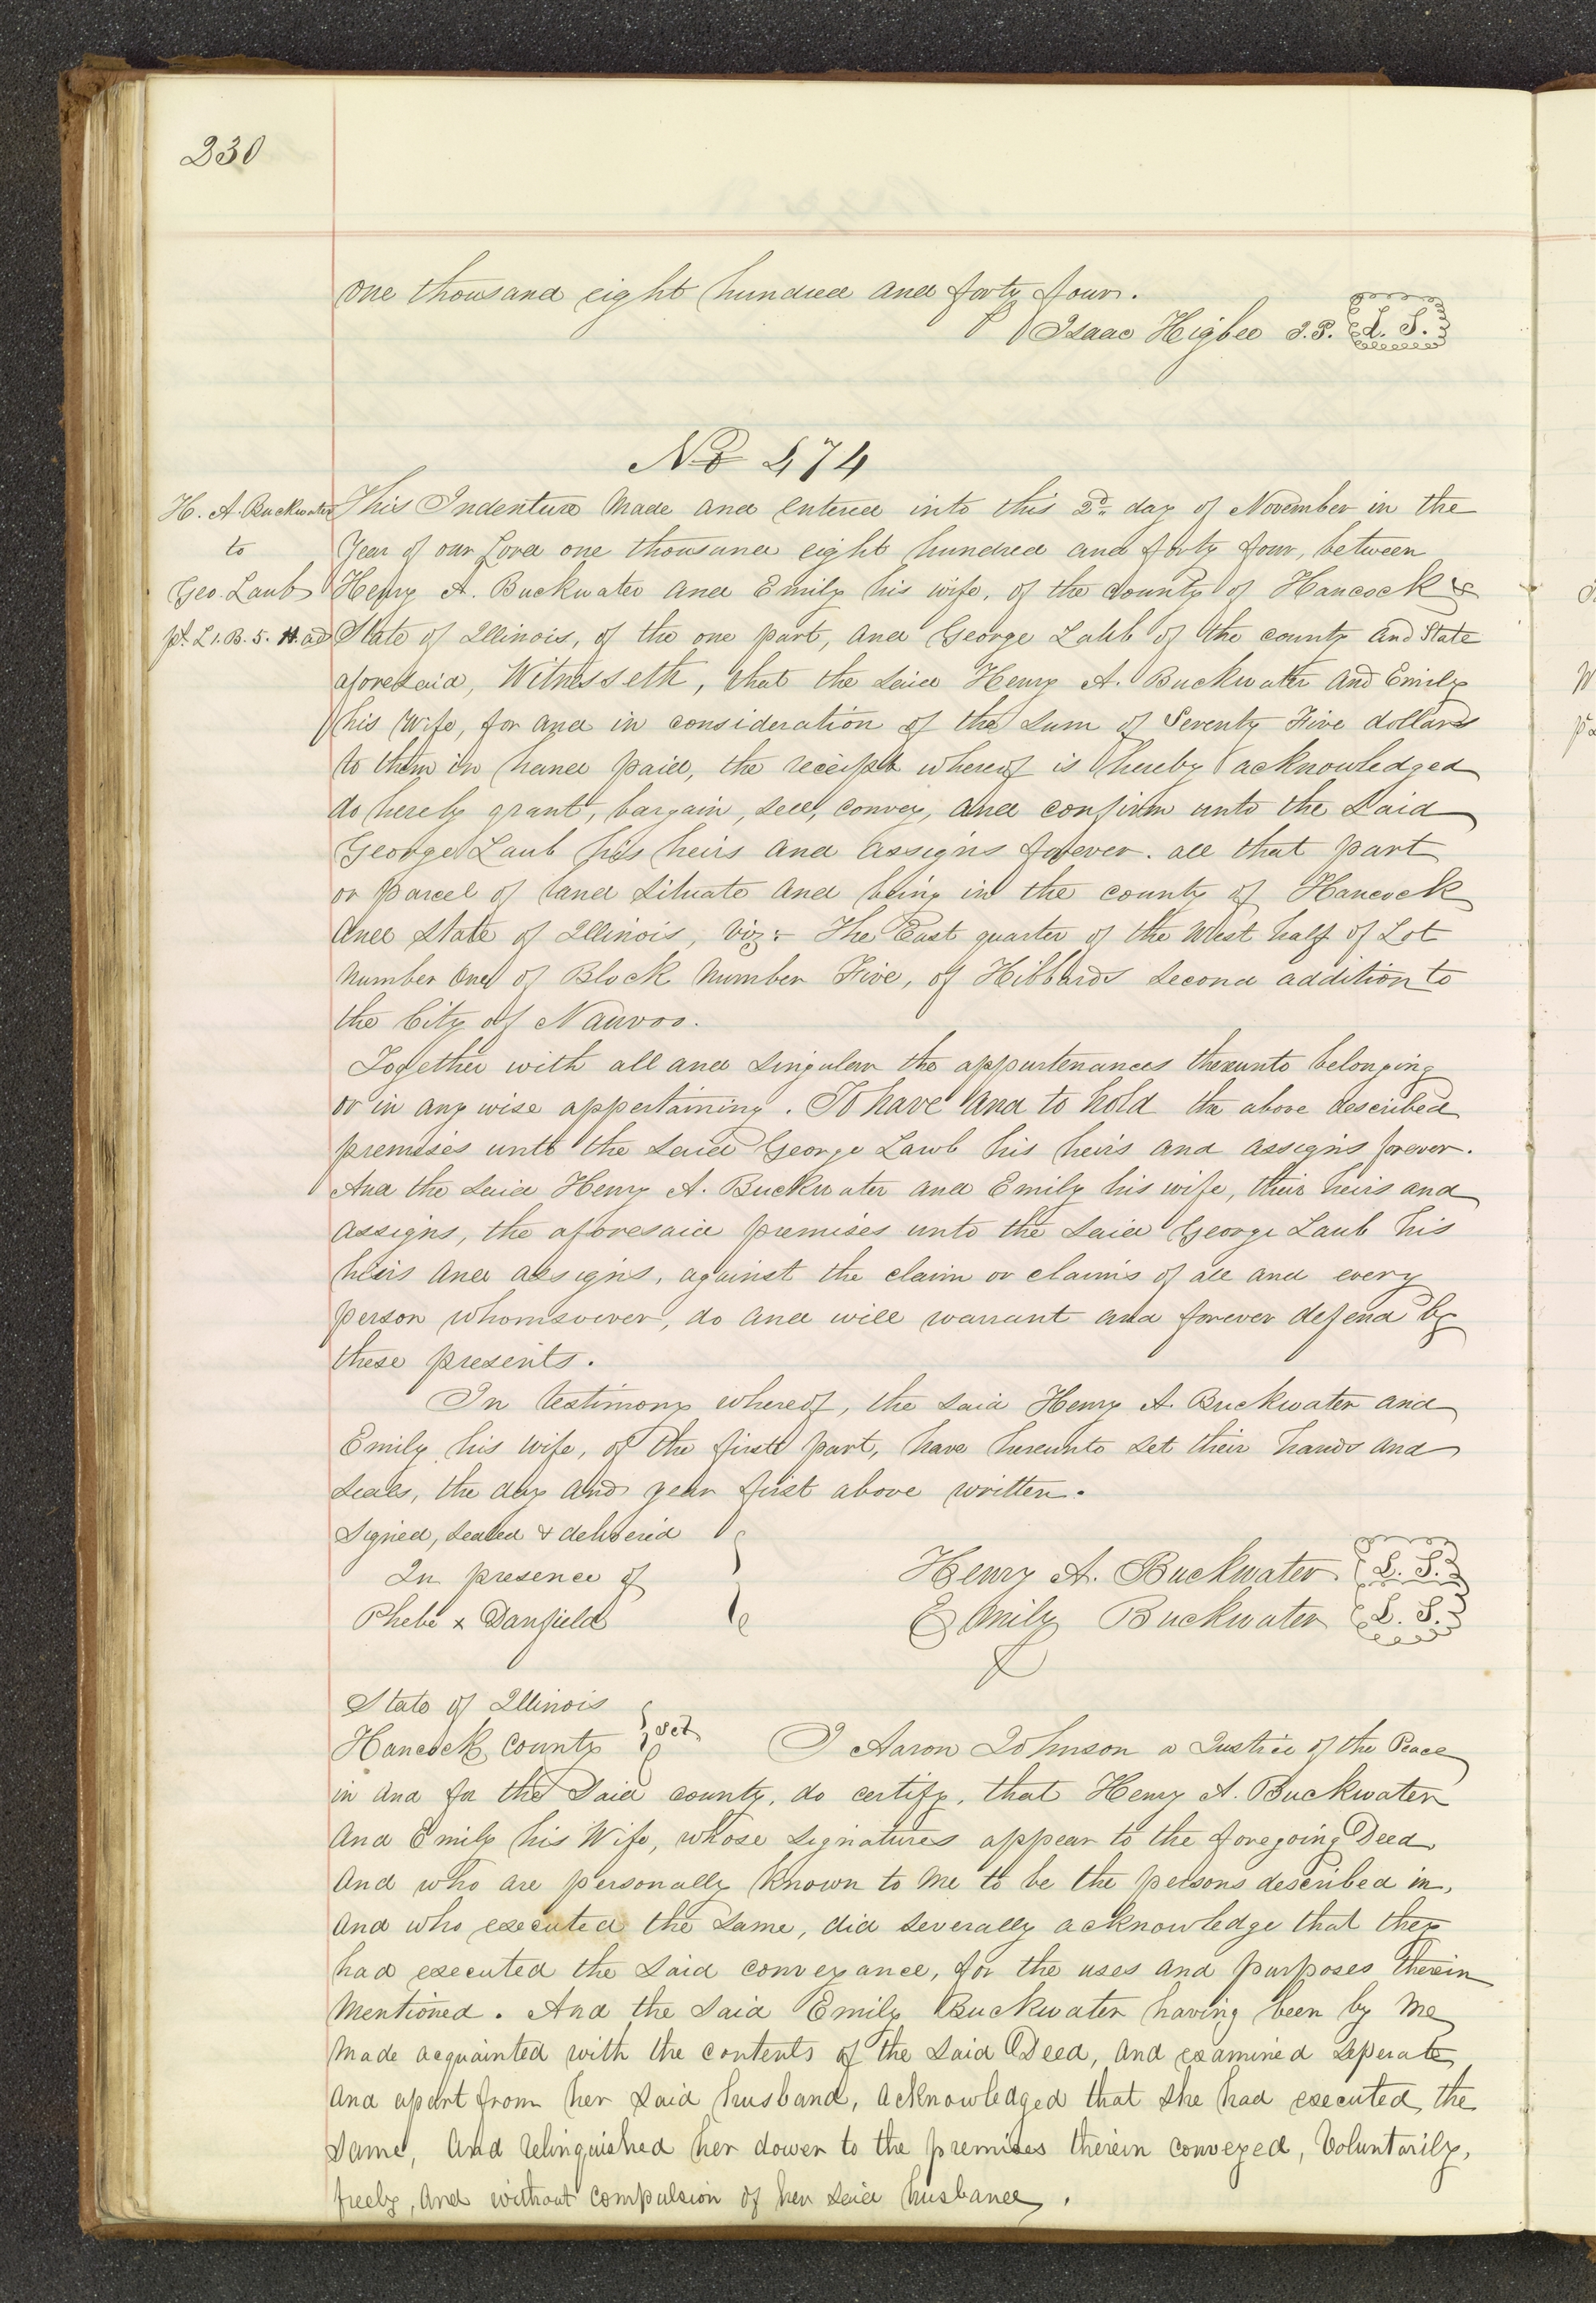 230
one thousand eight hundred and forty four.
Isaac Higbee J.P. L. S.
No 474
H. A. Buckwater
to
Geo. Laub
pt. L1. B. 5. H. ad
This Indenture Made and entered into this 2d. day of November in the
Year of our Lord one thousand eight hundred and forty four, between
Henry A. Buckwater and Emily his wife, of the County of Hancock &
State of Illinois, of the one part, and George Laub of the county and State
aforesaid, Witnesseth, that the said Henry A. Buckwater and Emily
his Wife, for and in consideration of the sum of Seventy Five dollars
to them in hand paid, the receipt whereof is hereby acknowledged
do hereby grant, bargain, sell, convey, and confirm unto the Said
George Laub his heirs and assigns forever. all that part
or parcel of land situate and being in the county of Hancock
and State of Illinois, viz:- The East quarter of the West half of Lot
number One of Block Number Five, of Hibbards second addition to
the City of Nauvoo.
Together with all and singular the appurtenances thereunto belonging
or in any wise appertaining. To have and to hold the above described
premises unto the said George Lawb his heirs and assigns forever.
And the said Henry A. Buckwater and Emily his wife, their heirs and
assigns, the aforesaid premises unto the said George Laub his
heirs and assigns, against the claim or claims of all and every
person whomsoever, do and will warrant and forever defend by
these presents.
In testimony whereof, the said Henry A. Buckwater and
Emily his Wife, of the first part, have hereunto set their hands and
seals, the day and year first above written.
Signed, sealed & delivered
In presence of
Phebe x Danfield
Henry A. Buckwater L. S.
Emily Buckwater L. S.
State of Illinois
Hancock County } Sct
I Aaron Johnson a Justice of the Peace
in and for the said county, do certify, that Henry A. Buckwater
and Emily his Wife, whose signatures appear to the foregoing Deed
and who are personally known to me to be the persons described in,
and who executed the same, did severally acknowledge that they
had executed the said conveyance, for the uses and purposes therein
Mentioned. And the said Emily Buckwater having been by me
made acquainted with the contents of the said Deed, and examined seperate
and apart from her said husband, acknowledged that she had executed the
same, and relinquished her dower to the premises therein conveyed, Voluntarily,
freely, and without compulsion of her said husband.